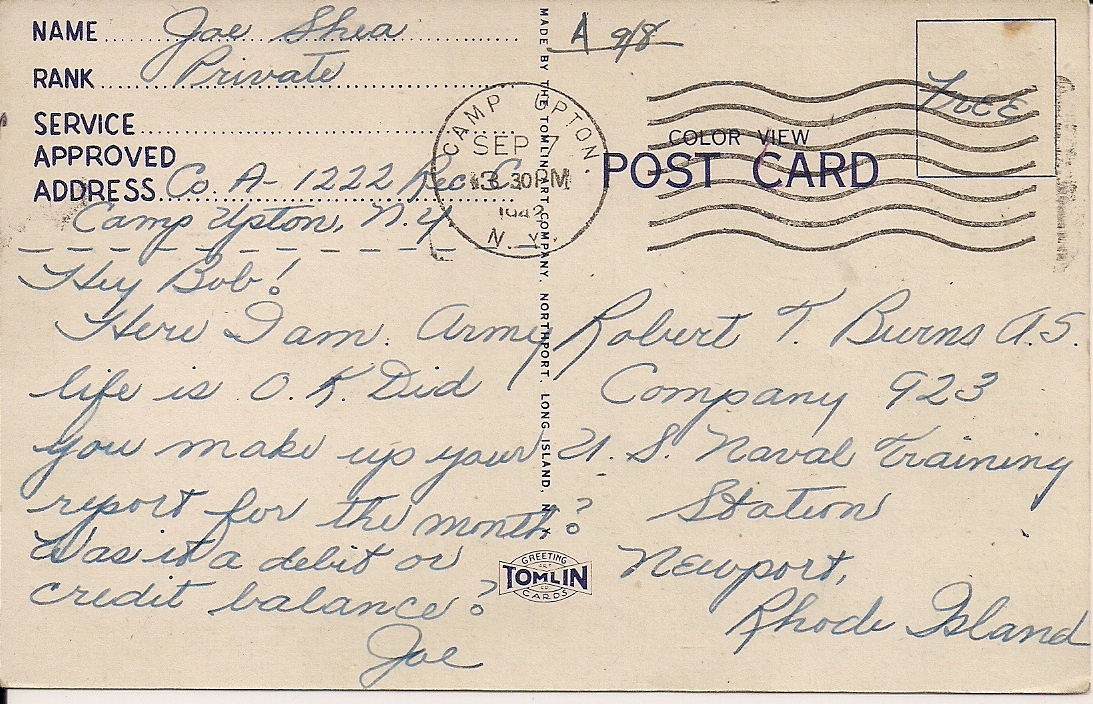 NAME Joe Shea
RANK Private
SERVICE
APPROVED
ADDRESS Co. A- 1222 Rec. C.
Camp Upton, N.Y.
Hey Bob!
Here I am. Army
life is O.K. Did
you make up your
report for the month?
Was it a debit or
credit balance?
Joe
MADE BY THE TOMLIN ART COMPANY, NORTHPORT, LONG ISLAND, N.Y.
GREETING
TOMLIN
CARDS
A 9/8
CAMP UPTON.
SEP 7
30 PM
N.Y.
COLOR VIEW
POST CARD
Free
Robert T. Burns A.S.
Company 923
U.S. Naval Training
Station
Newport,
Rhode Island